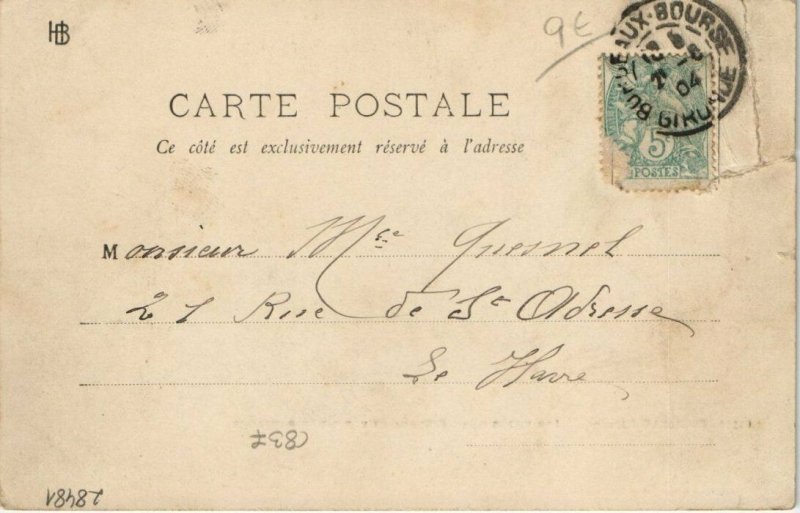 HB
9€
BORDEAUX-BOURSE
04
GIRONDE
5c
POSTES
CARTE POSTALE
Ce côté est exclusivement réservé à l'adresse
Monsieur Quesnel
21 Rue de Ste Adresse
Le Havre
28481